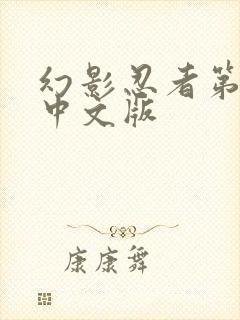 幻影忍者第
中文版
康康舞